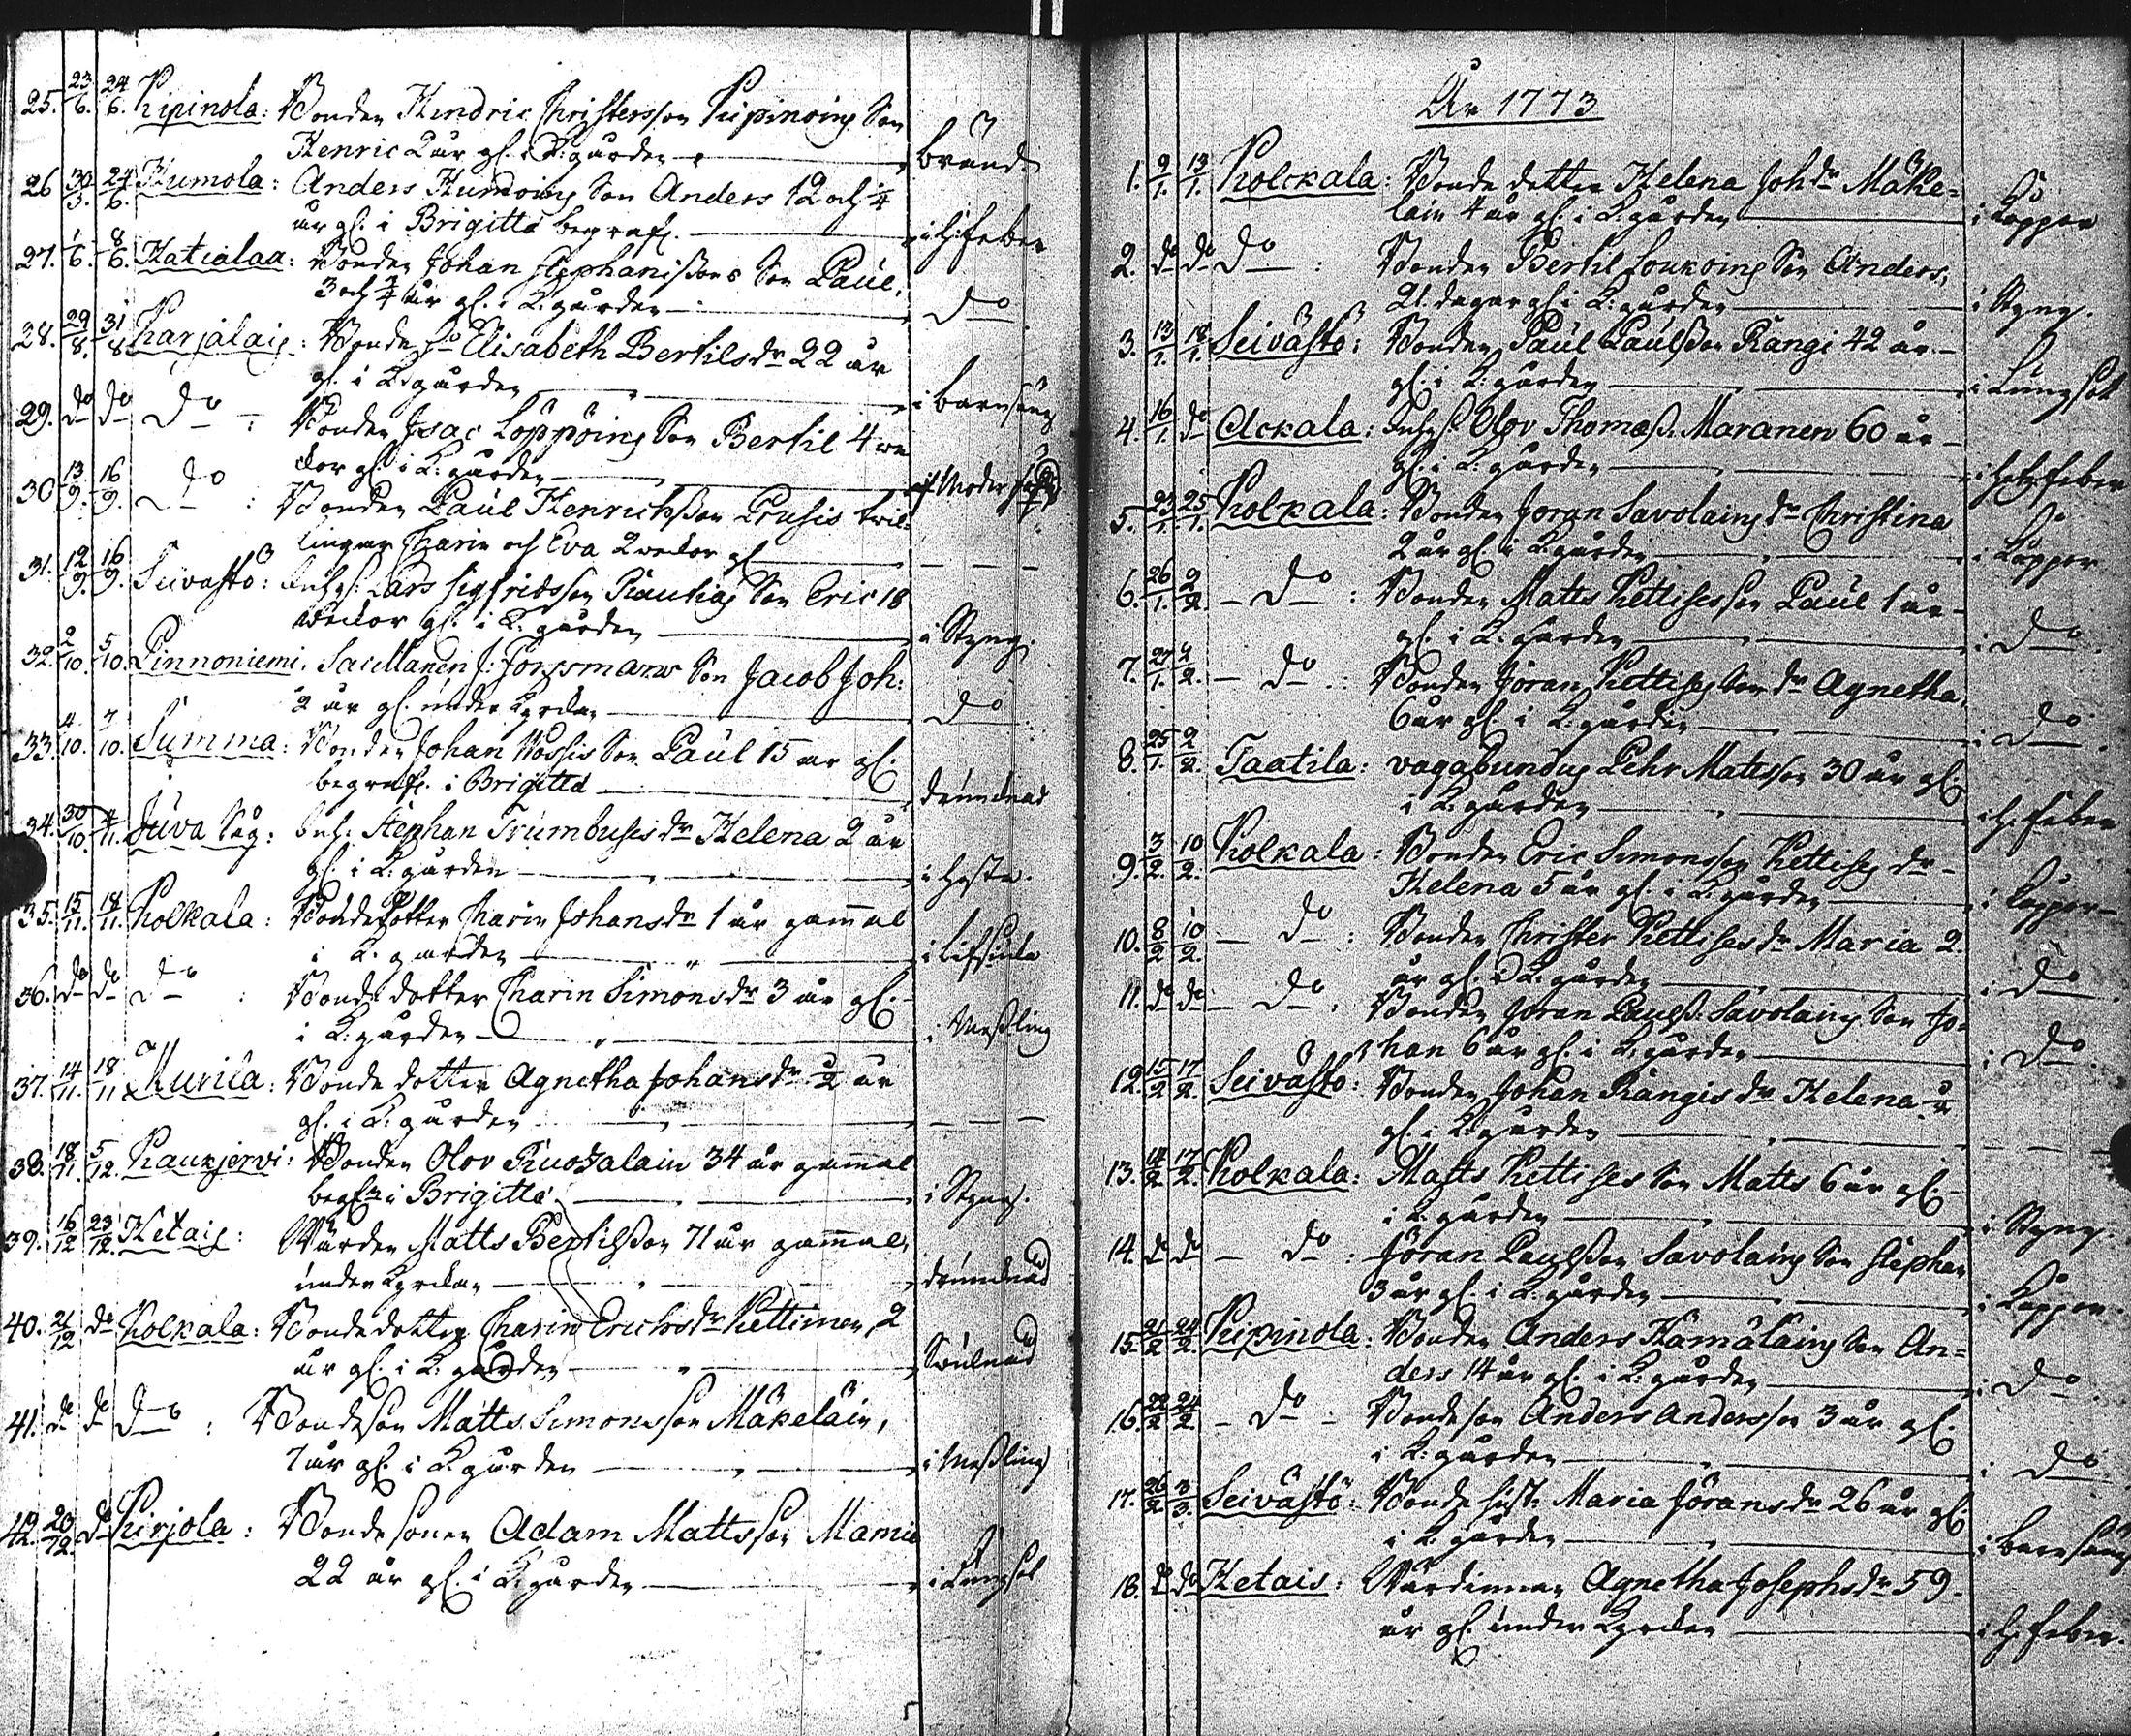 25. 23/6. 24/6. Kipinola: Bonden Hindric Christersson Kipinoins Son
Henric 2 år gl. i K:gården — bränd
26 30/5. 24/6. Humola: Anders Humoins Son Anders 12 och 1/4
år gl. i Brigittæ begrafn. — i H: feber
27. 1/6. 8/6. Hatialaa: Bonden Johan Stephanissons Son Paul,
3 och 3/4 år gl. i K:gården — Do
28. 29/8. 31/8 Karjalais: Bonde ho Elisabeth Bertilsdr 22 år
gl. i K:gården — i barnsäng
29. do do Do : Bonden Isac Löppöins Son Bertil 4 we
ckor gl. i K:gården — af Moder
30 13/9. 16/9. Do : Bonden Paul Henrichsson Pensis twil-
lingar Charin och Eva 2 weckor gl. — — —
31. 12/9. 16/9. Seivästö: Inhys. Lars Sigfridsson Riautias Son Eric 18
weckor gl. i K:gården — i Styng.
32. 2/10. 5/10. Pinnoniemi. Sacellanen J: Forssmans Son Jacob Joh:
2 år gl. under Kyrckan — Do
33. 4/10. 7/10. Summa: Bonden Johan Hossis Son Paul 15 år gl.
begrafn. i Brigittæ — drunknad
34. 30/10. 4/11. Juva Såg: Inh: Stephan Trumbusis dr Helena 2 år
gl. i K:gården — i Hosta.
35. 15/11. 18/11. Kolkala: Bondedotter Charin Johansdr 1 år gammal
i K:gården —
36. do do Do : Bonde dotter Charin Simonsdr 3 år gl.
i K:gården — i Messling
37. 14/11. 18/11 Kurila: Bonde dotter Agnetha Johansdr 1/2 år
gl. i K:gården — — —
38. 18/11. 5/12. Kaukjervi: Bonden Olov Ruohalain 34 år gammal
i Brigittæ — i Styng.
39. 16/12 23/12. Hetais: Värden Matts Bertilsson 71 år gammal,
under Kyrckan — drunknad
40. 21/12 do Kolkala: Bondedotter Charin Erichsdr Kettinen, 2
år gl. i K:gården — Swulnad
41. do do Do : Bondeson Matts Simonsson Mäkeläin,
7 år gl. i K:gården — i Messling
42. 20/12. do Kirjola: Bondesonen Adam Mattsson Mamia
22 år gl. i K:gården — i Lungsot
År 1773
1. 9/1. 13/1. Kolckala: Bonde dotter Helena Johdr Mäke=
läin 4 år gl. i K:gården — i Koppor
2. do do Do : Bonden Bertil Loukoins Son Anders,
21. dagar gl. i K:gården — i Styng.
3. 13/1. 18/1. Seivästö: Bonden Paul Paulsson Rangi 42 år —
gl. i K:gården — i Lungsot
4. 16/1. do Ackala: Inhys Olov Thomæss. Maranen 60 år —
gl. i K:gården — i Hetz feber
5. 23/1. 25/1. Kolkala: Bonden Joran Savolains dr Christina
2 år gl. i K:gården — i Koppor
6. 26/1. 2/2. — Do : Bonden Matts Kettisesson Paul 1 år —
gl. i K:gården — i Do.
7. 27/1. 2/2. — Do : Bonden Jöran Kettises dr Agnetha,
6 år gl. i K:gården — i Do.
8. 25/1. 2/2. Taatila: vagabundus Pehr Mattsson 30 år gl.
i K:gården — i H. feber
9. 3/2. 10/2. Kolkala: Bonden Eric Simonsson Kettises dr —
Helena 5 år gl. i K:gården — i Koppor —
10. 8/2 10/2. — Do : Bonden Christer Kettises dr Maria 2.
år gl. i K:gården — i Do.
11. do do — Do : Bonden Joran Paulss. Savolains Son Jo=
han 6 år gl. i K:gården — i Do.
12. 15/2 17/2. Seivästö: Bonden Johan Rangis dr Helena
gl. i K:gården — — —
13. 14/2. 17/2. Kolkala: Matts Kettises Son Matts 6 år gl.
i K:gården — i Styng.
14. do do — Do : Jöran Paulsson Savolains Son Stephan
3 år gl. i K:gården — i Koppor.
15. 21/2 24/2. Kipinola: Bonden Anders Hämäläins Son An=
ders 14 år gl. i K:gården — i Do.
16. 22/2 24/2. — Do — Bondeson Anders Andersson 3 år gl.
i K:gården — i Do.
17. 26/2 3/3. Seivästö: Bonde hust: Maria Joransdr 26 år gl.
i K:gården — i Barnsäng
18. do do Hetais: Värdinnan Agnetha Josephsdr 59 —
år gl. under Kyrckan — i H. feber.